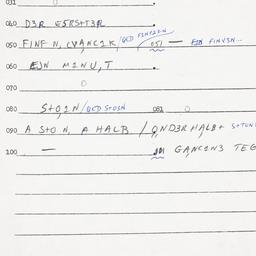 031
040 D3R E5RSHT3R
050 FINF N, CVANC1K / QCD FINF2IN 051 — FIN FINV3N...
060 EJN M1NU,T
070
080 StO,1N / QCD STOSN 081
090 A StON, A HALB / QND3R HALB+ S+TUN
100 — 101 GANC1N3 TEG